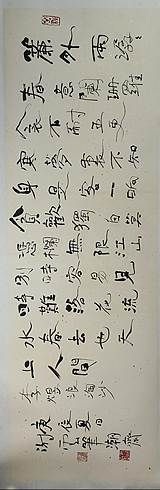 簾外雨潺潺
春意闌珊羅
衾不耐五更
寒夢裏不知
身是客一晌
貪歡獨自莫
憑欄無限江山
別時容易見
時難落花流
水春去也天
上人間
李煜浪淘沙